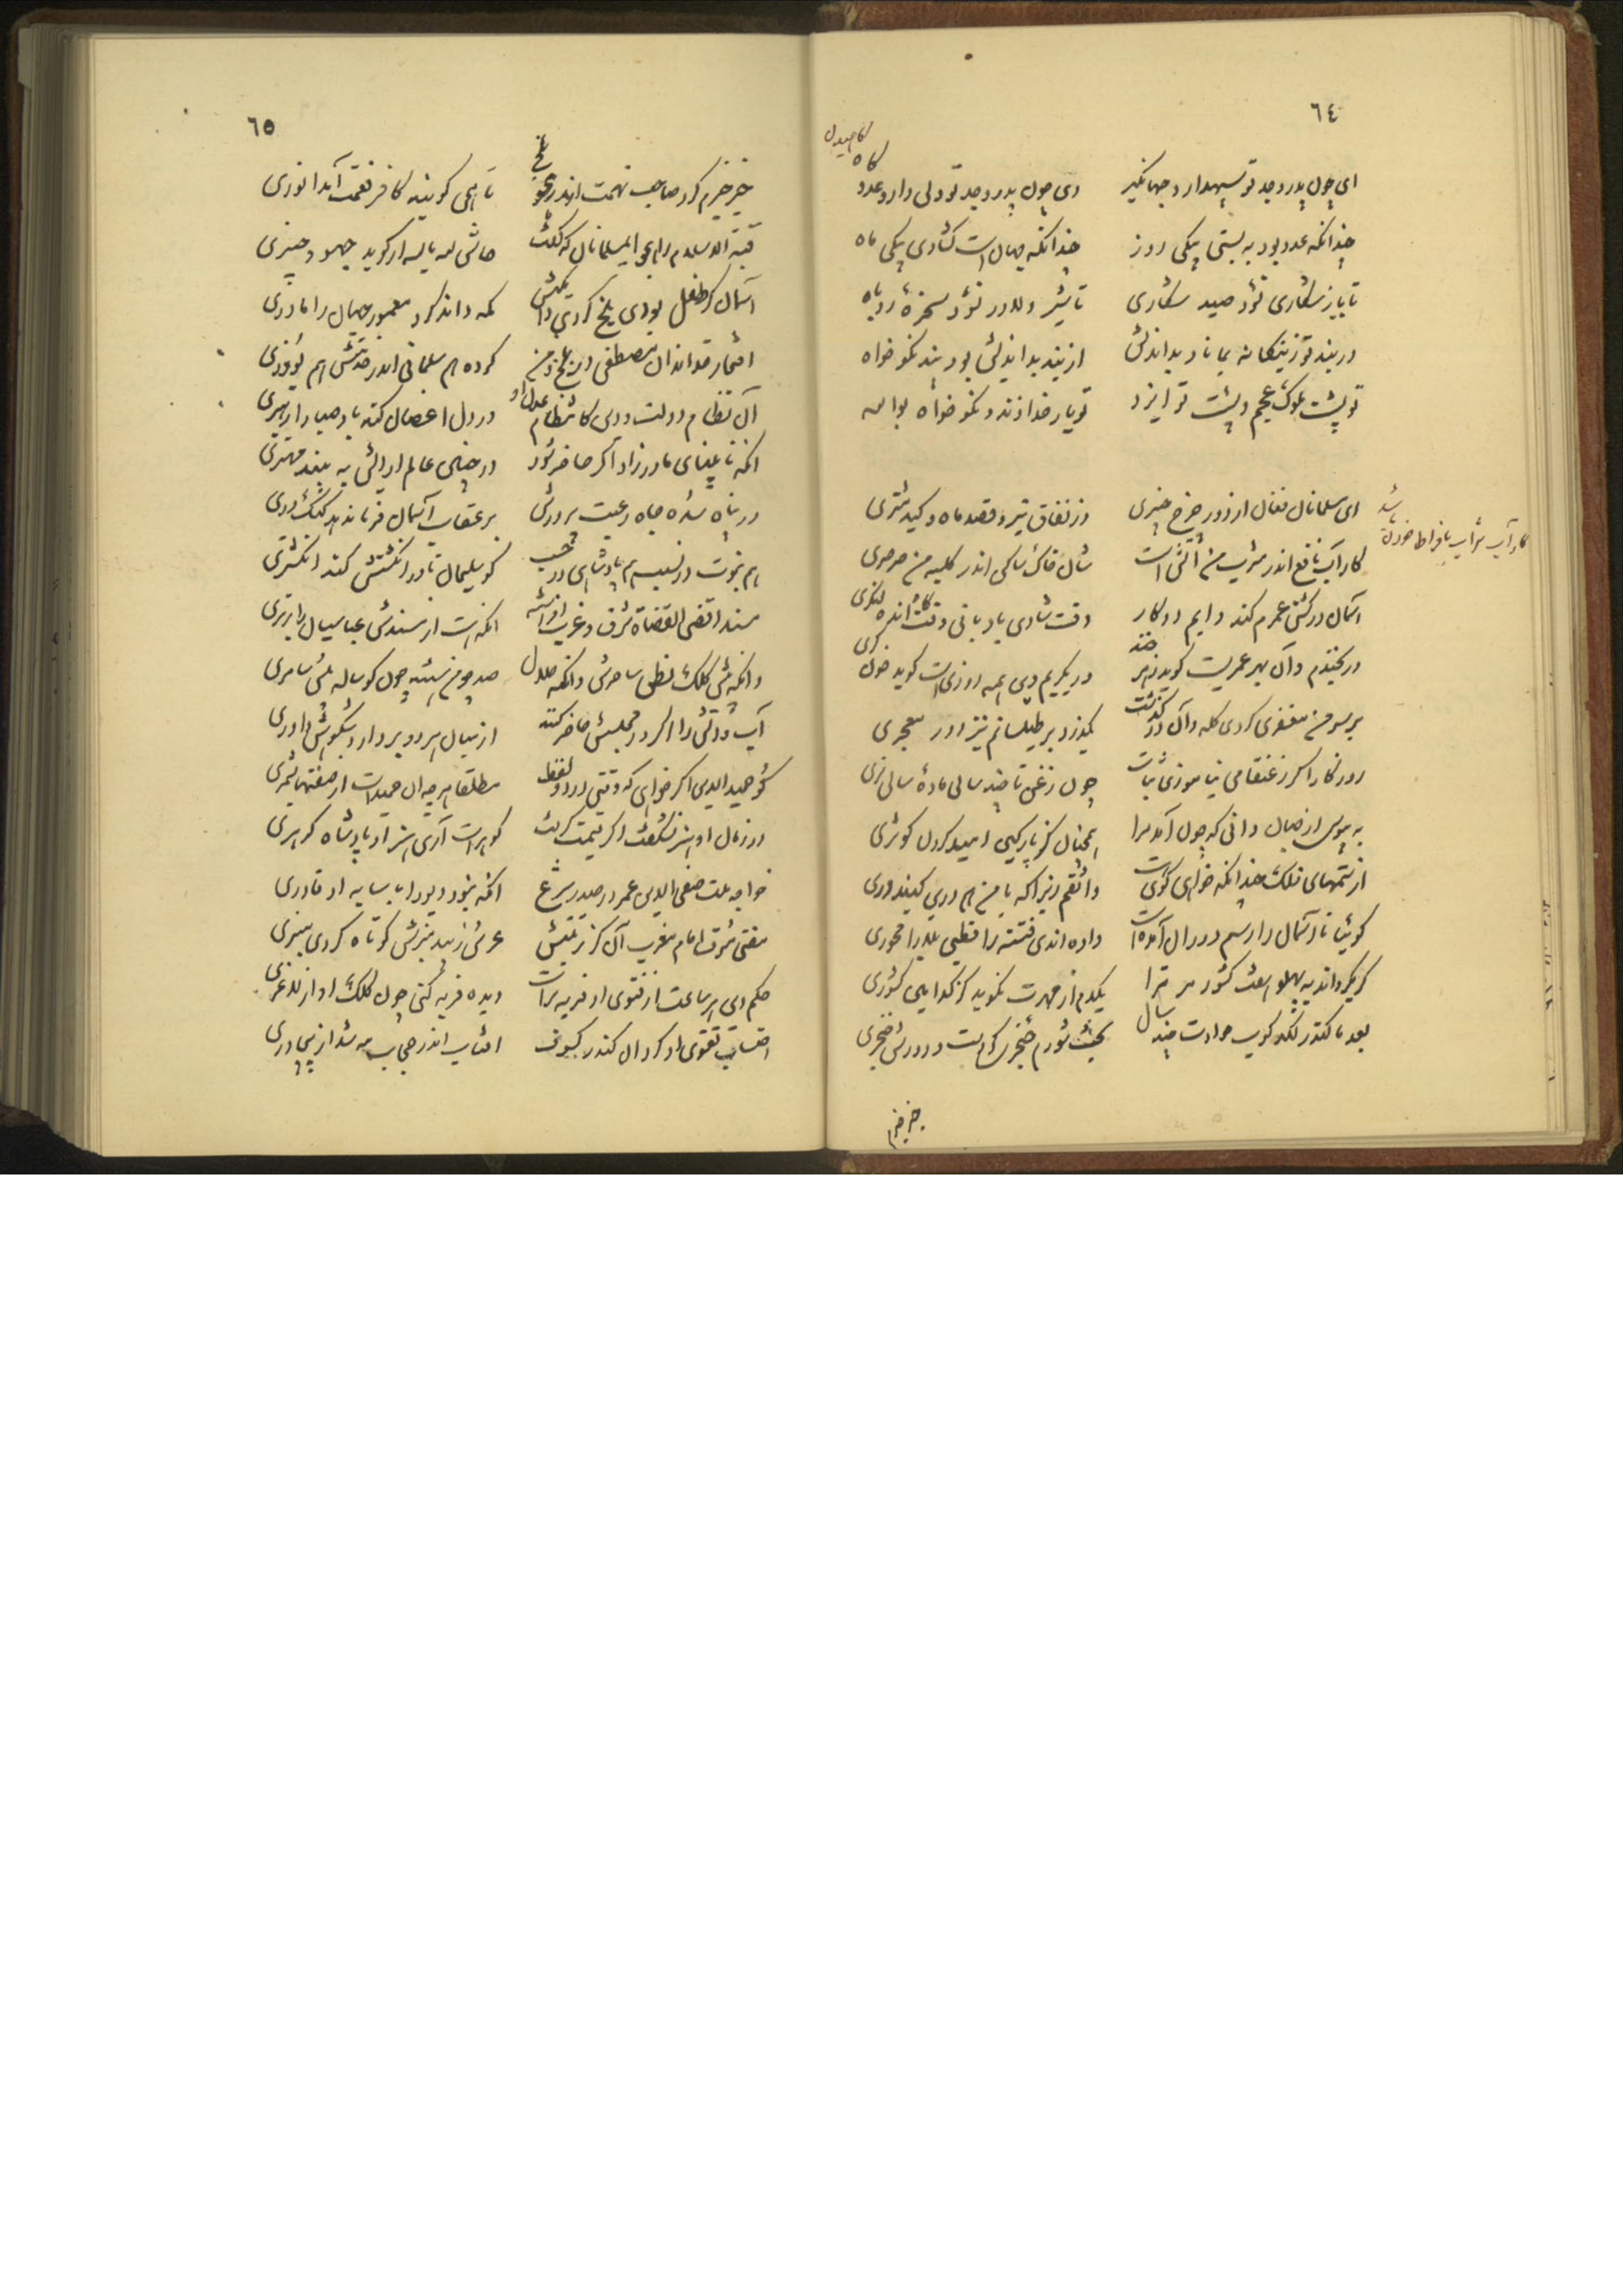 ٦٤
ای چون پدر و جد تو سپهدار و جهانگیر
وی چون پدر و جد تو ولی دار و عدو کاه
چندانکه عدو بود به بستی بیکی روز
چندانکه جهان است گشادی بیکی ماه
تا باز شکاری نشود صید شکاری
تا شیر دلاور نشود سخره روباه
در بند تو
بماناد بداندیش
از بند بداندیش بود بند نکو خواه
تو پشت ملوک عجم و پشت تو ایزد
تو یار خداوند و نکو خواه تو الله
ای مسلمانان فغان از دور چرخ چنبری
وز نفاق تیر و قصد ماه و کید مشتری
کار آب نافع اندر مشرب من آتشی است
شغل خاک ساکن اندر کلبه من صرصری
آسمان در کشتی عمرم کند دایم دو کار
وقت شادی بادبانی وقت انده لنگری
گر بخندم وان بهر عمریست گوید زهر خند
ور بگریم وین همه روزیست گوید خون گری
بر سر من مغفری کردی کله وان در گذشت
بگذرد بر طیلسانم نیز دور معجری
روزگارا گر ز عنقا می نیاموزی ثبات
چون زغن تا چند سالی ماده سالی نری
به بوس از جهان دانی که چون آمد مرا
همچنان کز پارگین امید کردن کوثری
از ستمهای فلک چندانکه خواهی گوی هست
واثقم زیرا که با من هم درین گنبد دری
گوئیا تا آسمان را رسم دوران آمده است
داده اندی فتنه را قطبی بلا را محوری
گر بگرداند به پهلو هفت کشور مر ترا
یکدم از مهرت نگوید کز کدامین کشوری
بعد ما کاندر لگدکوب حوادث چند سال
بخت شورم خنجرک کردست و دورش خنجری
خیر خیرم
٦٥
خیر خیرم کرد صاحب تهمت اندر هجو بلخ
تا همی گویند کافر نعمت آمد انوری
قبة الاسلام را هجو ای مسلمانان که گفت
حاش لله بالله ار گوید جهود خیبری
آسمان گر طفل بودی بلخ کردی دایگیش
مکه داند کرد معمور جهان را مادری
افتخار خاندان مصطفی در بلخ و من
کرده هم سلمانی اندر خدمتش هم بوذری
آن نظام دولت و دین کانتظام عدل او
در دل اغصان کند باد صبا را رهبری
آنکه نابینای مادرزاد اگر حاضر شود
در جبین عالم آرایش به بیند مهتری
در پناه سده جاه رعیت پرورش
بر عقاب آسمان فرمان دهد کبک دری
هم نبوت در نسب هم پادشاهی در حسب
کو سلیمان تا در انگشتش کند انگشتری
مسند اقضی القضاة شرق و غرب افراشته
آنکه هست از مسندش عباسیان را برتری
وانکه پیش کلک و نطق ساحرش وانگه حلال
صد چو من هستند چون گوساله پیش سامری
آب و آتش را اگر در مجلسش حاضر کند
از میان هر دو بردارد شکوهش داوری
کو حمیدالدین اگر خواهی که وقتی در دو لفظ
مطلقا هر چه آن حمیدست از صفتها بشمری
در زمان او هنر نشگفت اگر قیمت گرفت
گوهرست آری هنر او پادشاه گوهری
خواجه ملت صفی الدین عمر در صدر شرع
آنکه نبود دیو را با سایه او قادری
مفتی شرق و امام مغرب آن کز رتبتش
عرش زیبد منبرش کوتاه کردی منبری
حکم دین هر ساعت از فتوی او فربه تراست
دیده فربه کنی چون کلک او از لاغری
احتساب تقوی او کرد آن کندر کسوف
آفتاب اندر حجاب مه شد از بی چادری
کام صیدل
کار آب شراب بافراط خوردن باشد